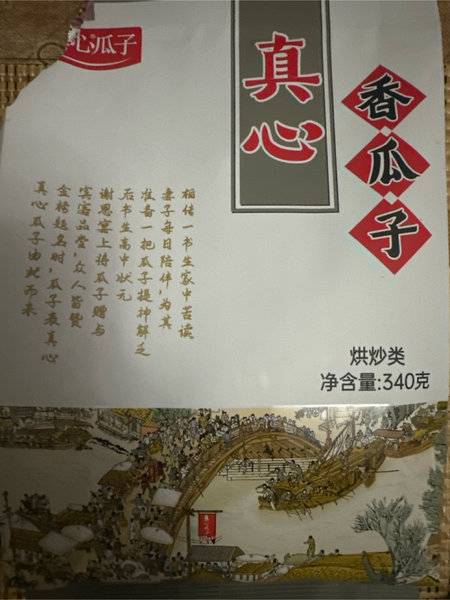 心瓜子
真心
香瓜子
相传一书生家中苦读
妻子每日陪伴,为其
准备一把瓜子提神解乏
后书生高中状元
谢恩宴上将瓜子赠与
宾客品尝,众人皆赞
金榜题名时,瓜子表真心
真心瓜子由此而来
烘炒类
净含量:340克